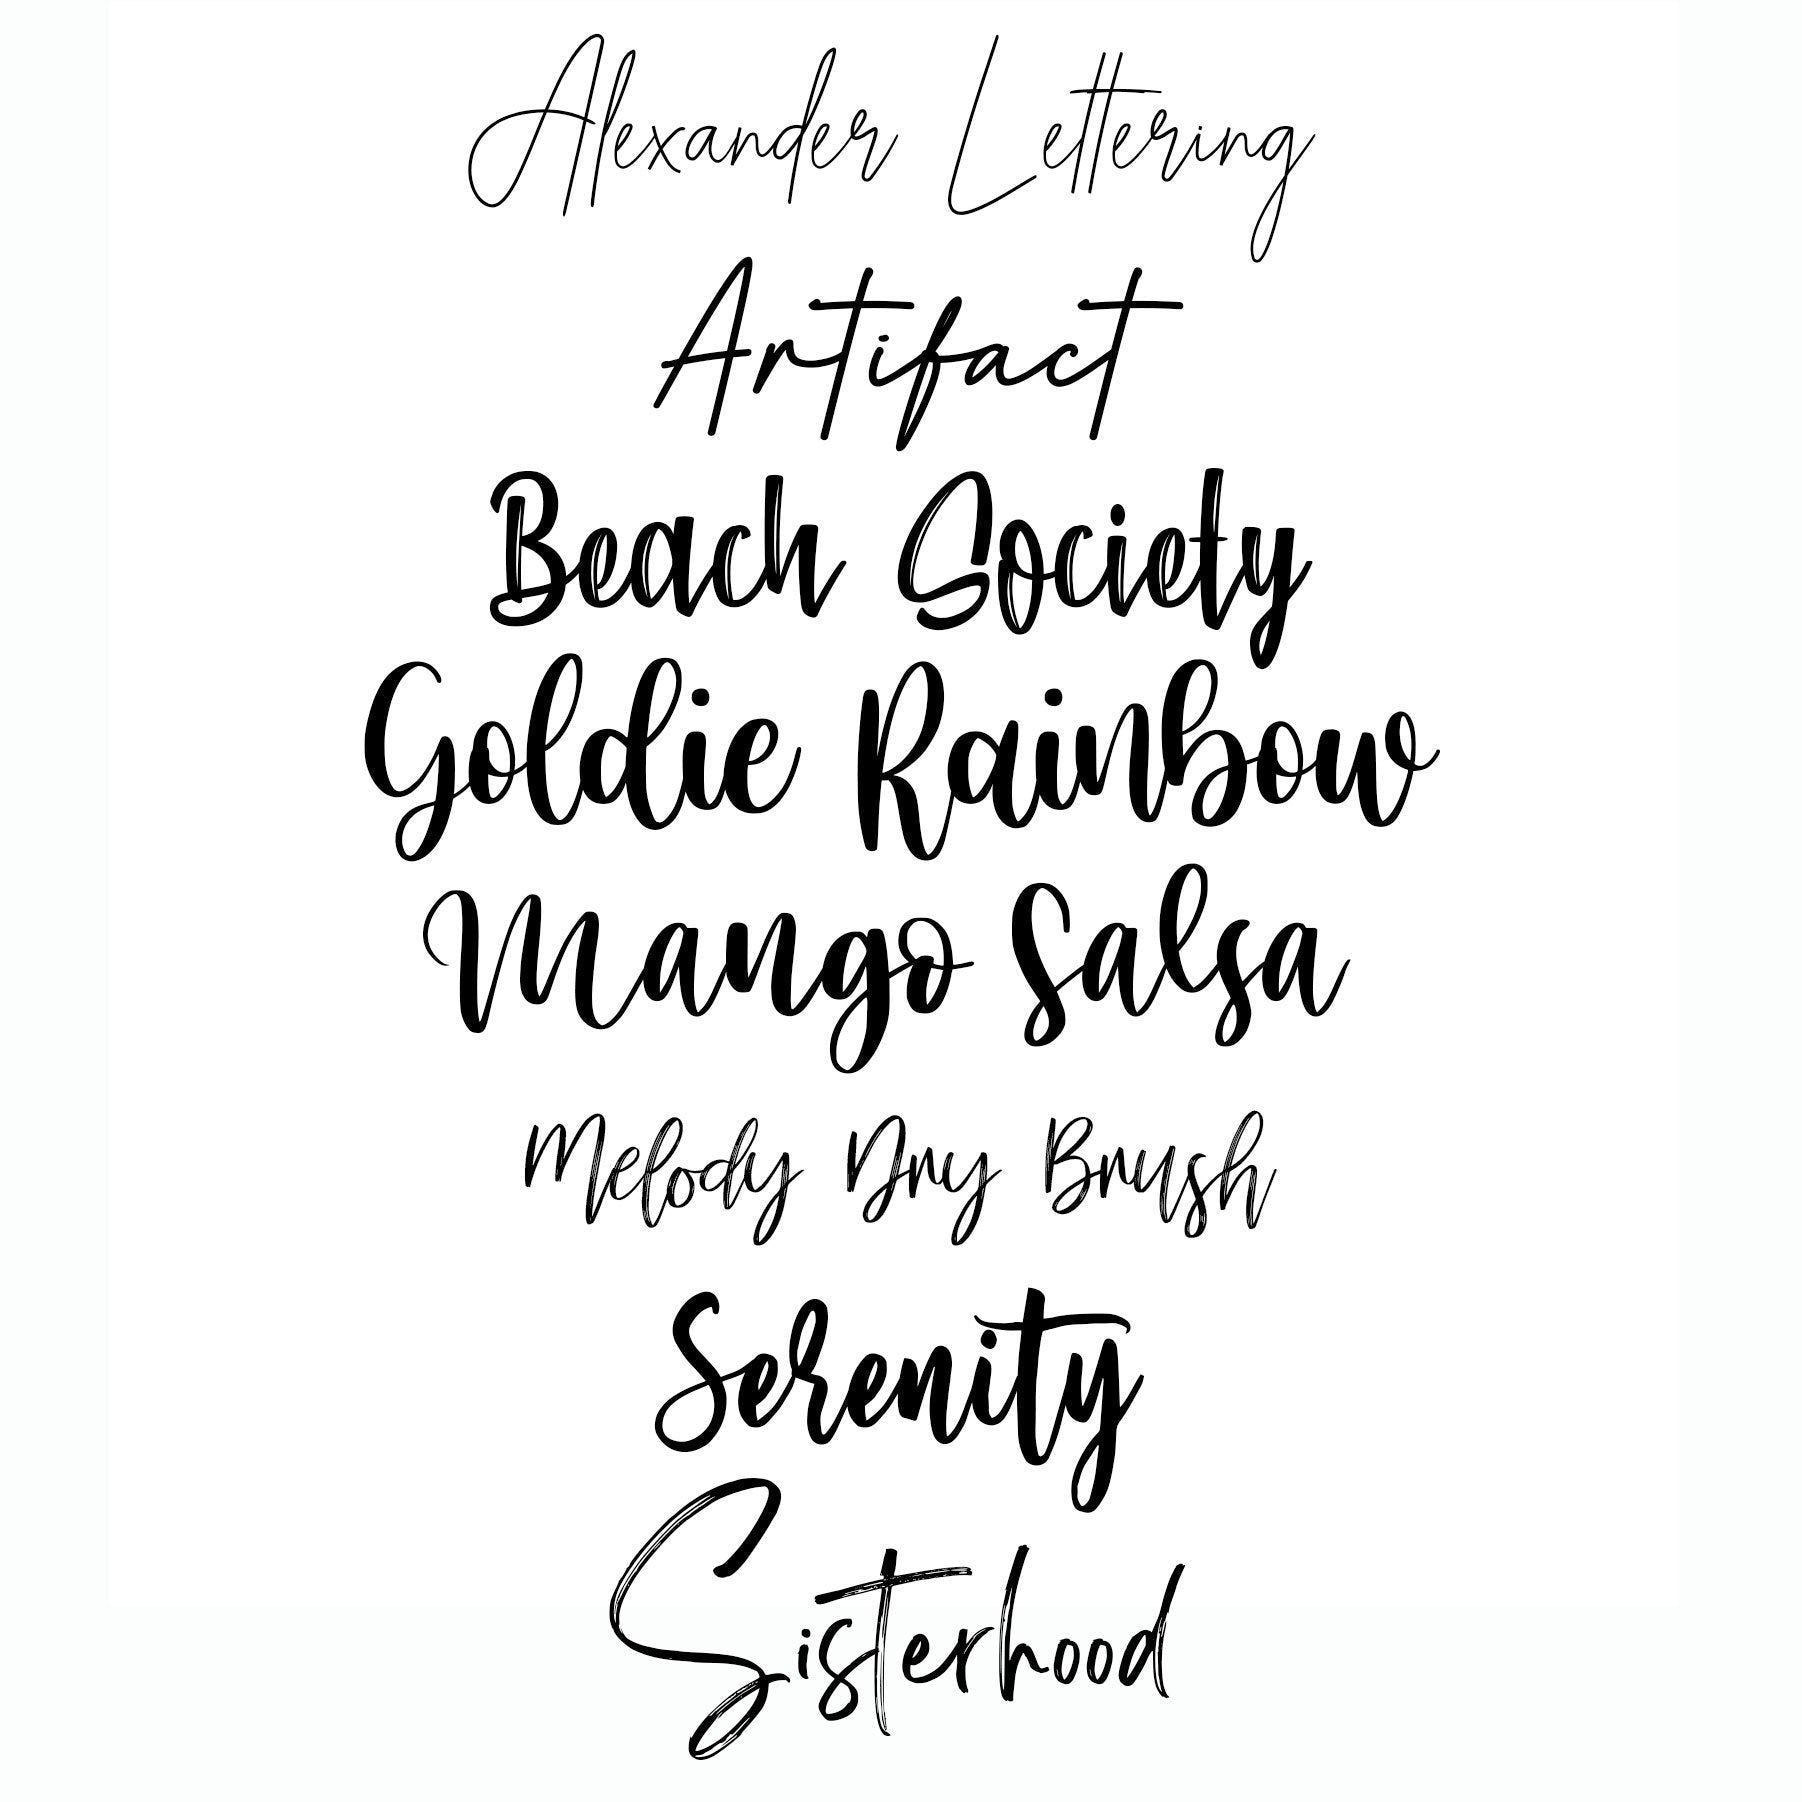 Alexander Lettering
Artifact
Beach Society
Goldie Rainbow
Mango Salsa
Melody Dry Brush
Serenity
Sisterhood